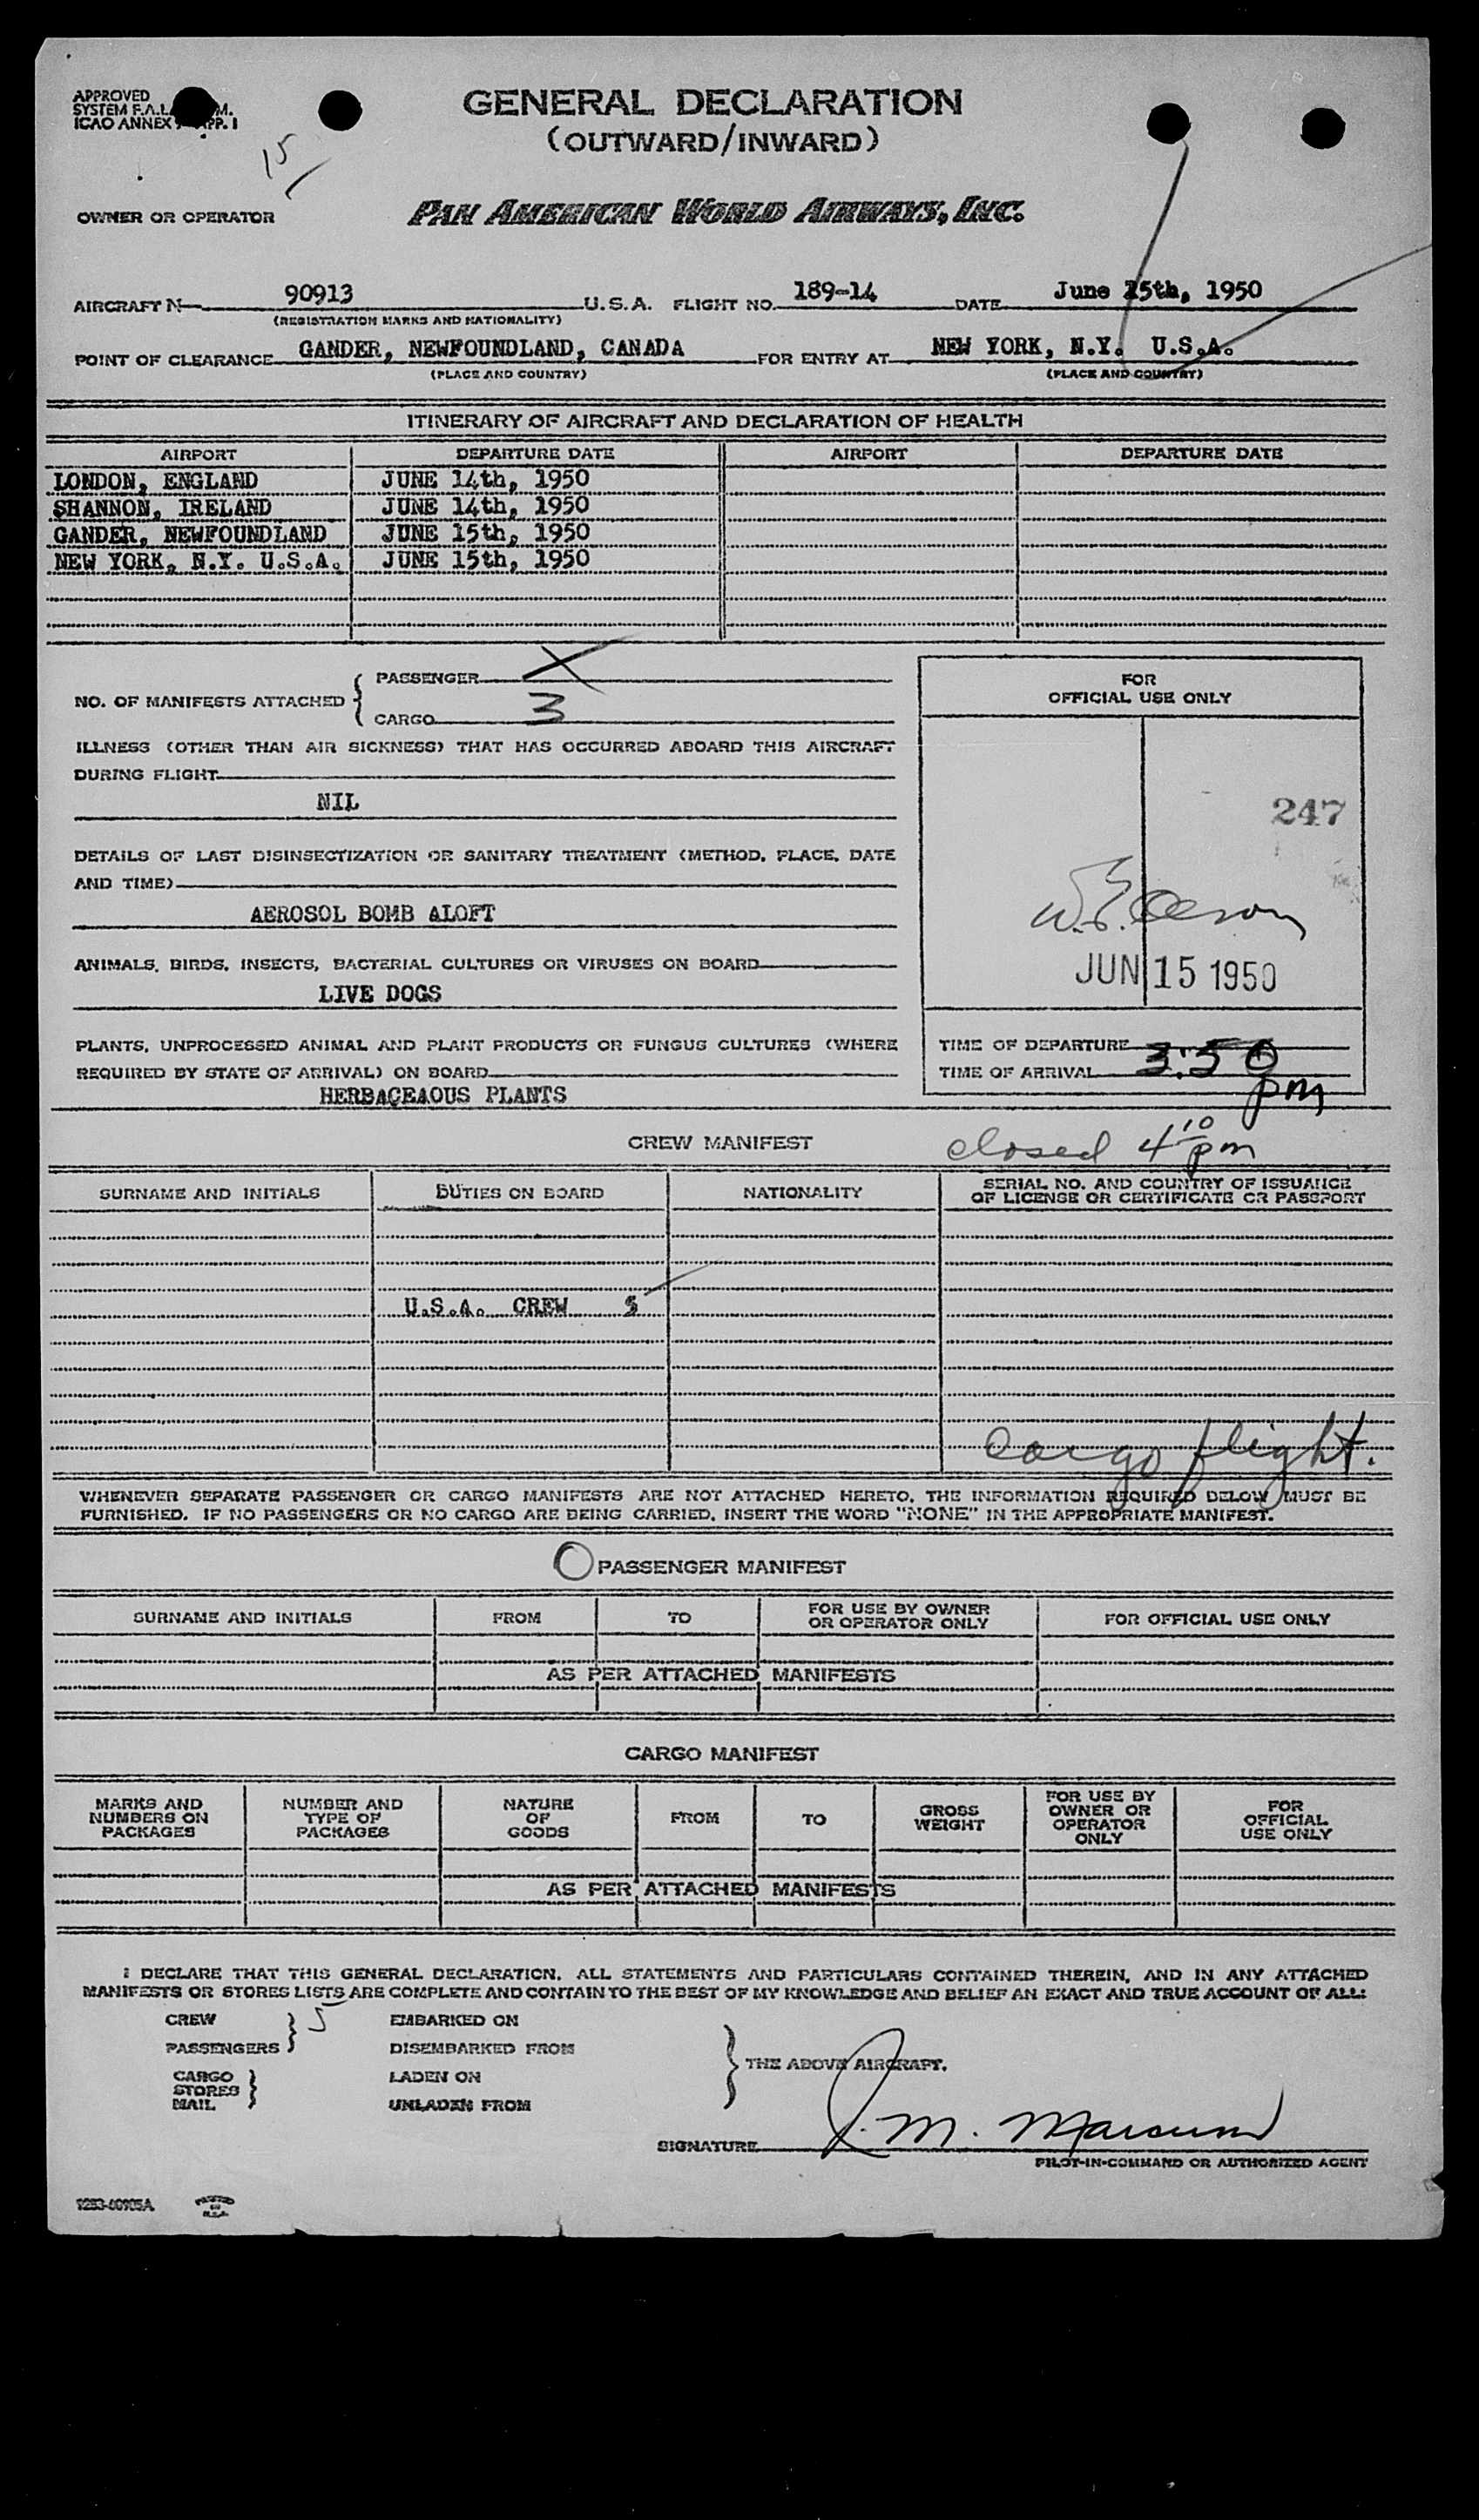 APPROVED
SYSTEM F.A.L. M.
ICAO ANNEX APP. I
GENERAL DECLARATION
(OUTWARD/INWARD)
15
OWNER OR OPERATOR
PAN AMERICAN WORLD AIRWAYS, INC.
AIRCRAFT N 90913 U.S.A. FLIGHT NO. 189-14 DATE June 15th, 1950
(REGISTRATION MARKS AND NATIONALITY)
POINT OF CLEARANCE GANDER, NEWFOUNDLAND, CANADA FOR ENTRY AT NEW YORK, N.Y. U.S.A.
(PLACE AND COUNTRY) (PLACE AND COUNTRY)
ITINERARY OF AIRCRAFT AND DECLARATION OF HEALTH
AIRPORT DEPARTURE DATE AIRPORT DEPARTURE DATE
LONDON, ENGLAND JUNE 14th, 1950
SHANNON, IRELAND JUNE 14th, 1950
GANDER, NEWFOUNDLAND JUNE 15th, 1950
NEW YORK, N.Y. U.S.A. JUNE 15th, 1950
NO. OF MANIFESTS ATTACHED
PASSENGER X
CARGO 3
ILLNESS (OTHER THAN AIR SICKNESS) THAT HAS OCCURRED ABOARD THIS AIRCRAFT
DURING FLIGHT
NIL
DETAILS OF LAST DISINSECTIZATION OR SANITARY TREATMENT (METHOD, PLACE, DATE
AND TIME)
AEROSOL BOMB ALOFT
ANIMALS, BIRDS, INSECTS, BACTERIAL CULTURES OR VIRUSES ON BOARD
LIVE DOGS
PLANTS, UNPROCESSED ANIMAL AND PLANT PRODUCTS OR FUNGUS CULTURES (WHERE
REQUIRED BY STATE OF ARRIVAL) ON BOARD
HERBACEAOUS PLANTS
FOR
OFFICIAL USE ONLY
247
JUN 15 1950
TIME OF DEPARTURE
TIME OF ARRIVAL 3:50
pm
closed 4 10 pm
CREW MANIFEST
SURNAME AND INITIALS DUTIES ON BOARD NATIONALITY SERIAL NO. AND COUNTRY OF ISSUANCE
OF LICENSE OR CERTIFICATE OR PASSPORT
U.S.A. CREW 5
Cargo flight.
WHENEVER SEPARATE PASSENGER OR CARGO MANIFESTS ARE NOT ATTACHED HERETO, THE INFORMATION REQUIRED BELOW MUST BE
FURNISHED. IF NO PASSENGERS OR NO CARGO ARE BEING CARRIED, INSERT THE WORD "NONE" IN THE APPROPRIATE MANIFEST.
O PASSENGER MANIFEST
SURNAME AND INITIALS FROM TO FOR USE BY OWNER
OR OPERATOR ONLY FOR OFFICIAL USE ONLY
AS PER ATTACHED MANIFESTS
CARGO MANIFEST
MARKS AND
NUMBERS ON
PACKAGES
NUMBER AND
TYPE OF
PACKAGES
NATURE
OF
GOODS
FROM
TO
GROSS
WEIGHT
FOR USE BY
OWNER OR
OPERATOR
ONLY
FOR
OFFICIAL
USE ONLY
AS PER ATTACHED MANIFESTS
I DECLARE THAT THIS GENERAL DECLARATION, ALL STATEMENTS AND PARTICULARS CONTAINED THEREIN, AND IN ANY ATTACHED
MANIFESTS OR STORES LISTS ARE COMPLETE AND CONTAIN TO THE BEST OF MY KNOWLEDGE AND BELIEF AN EXACT AND TRUE ACCOUNT OF ALL:
CREW 5 EMBARKED ON
PASSENGERS DISEMBARKED FROM
THE ABOVE AIRCRAFT.
CARGO LADEN ON
STORES
MAIL UNLADEN FROM
SIGNATURE J. M. Marcum
PILOT-IN-COMMAND OR AUTHORIZED AGENT
PRINTED
IN
U.S.A.